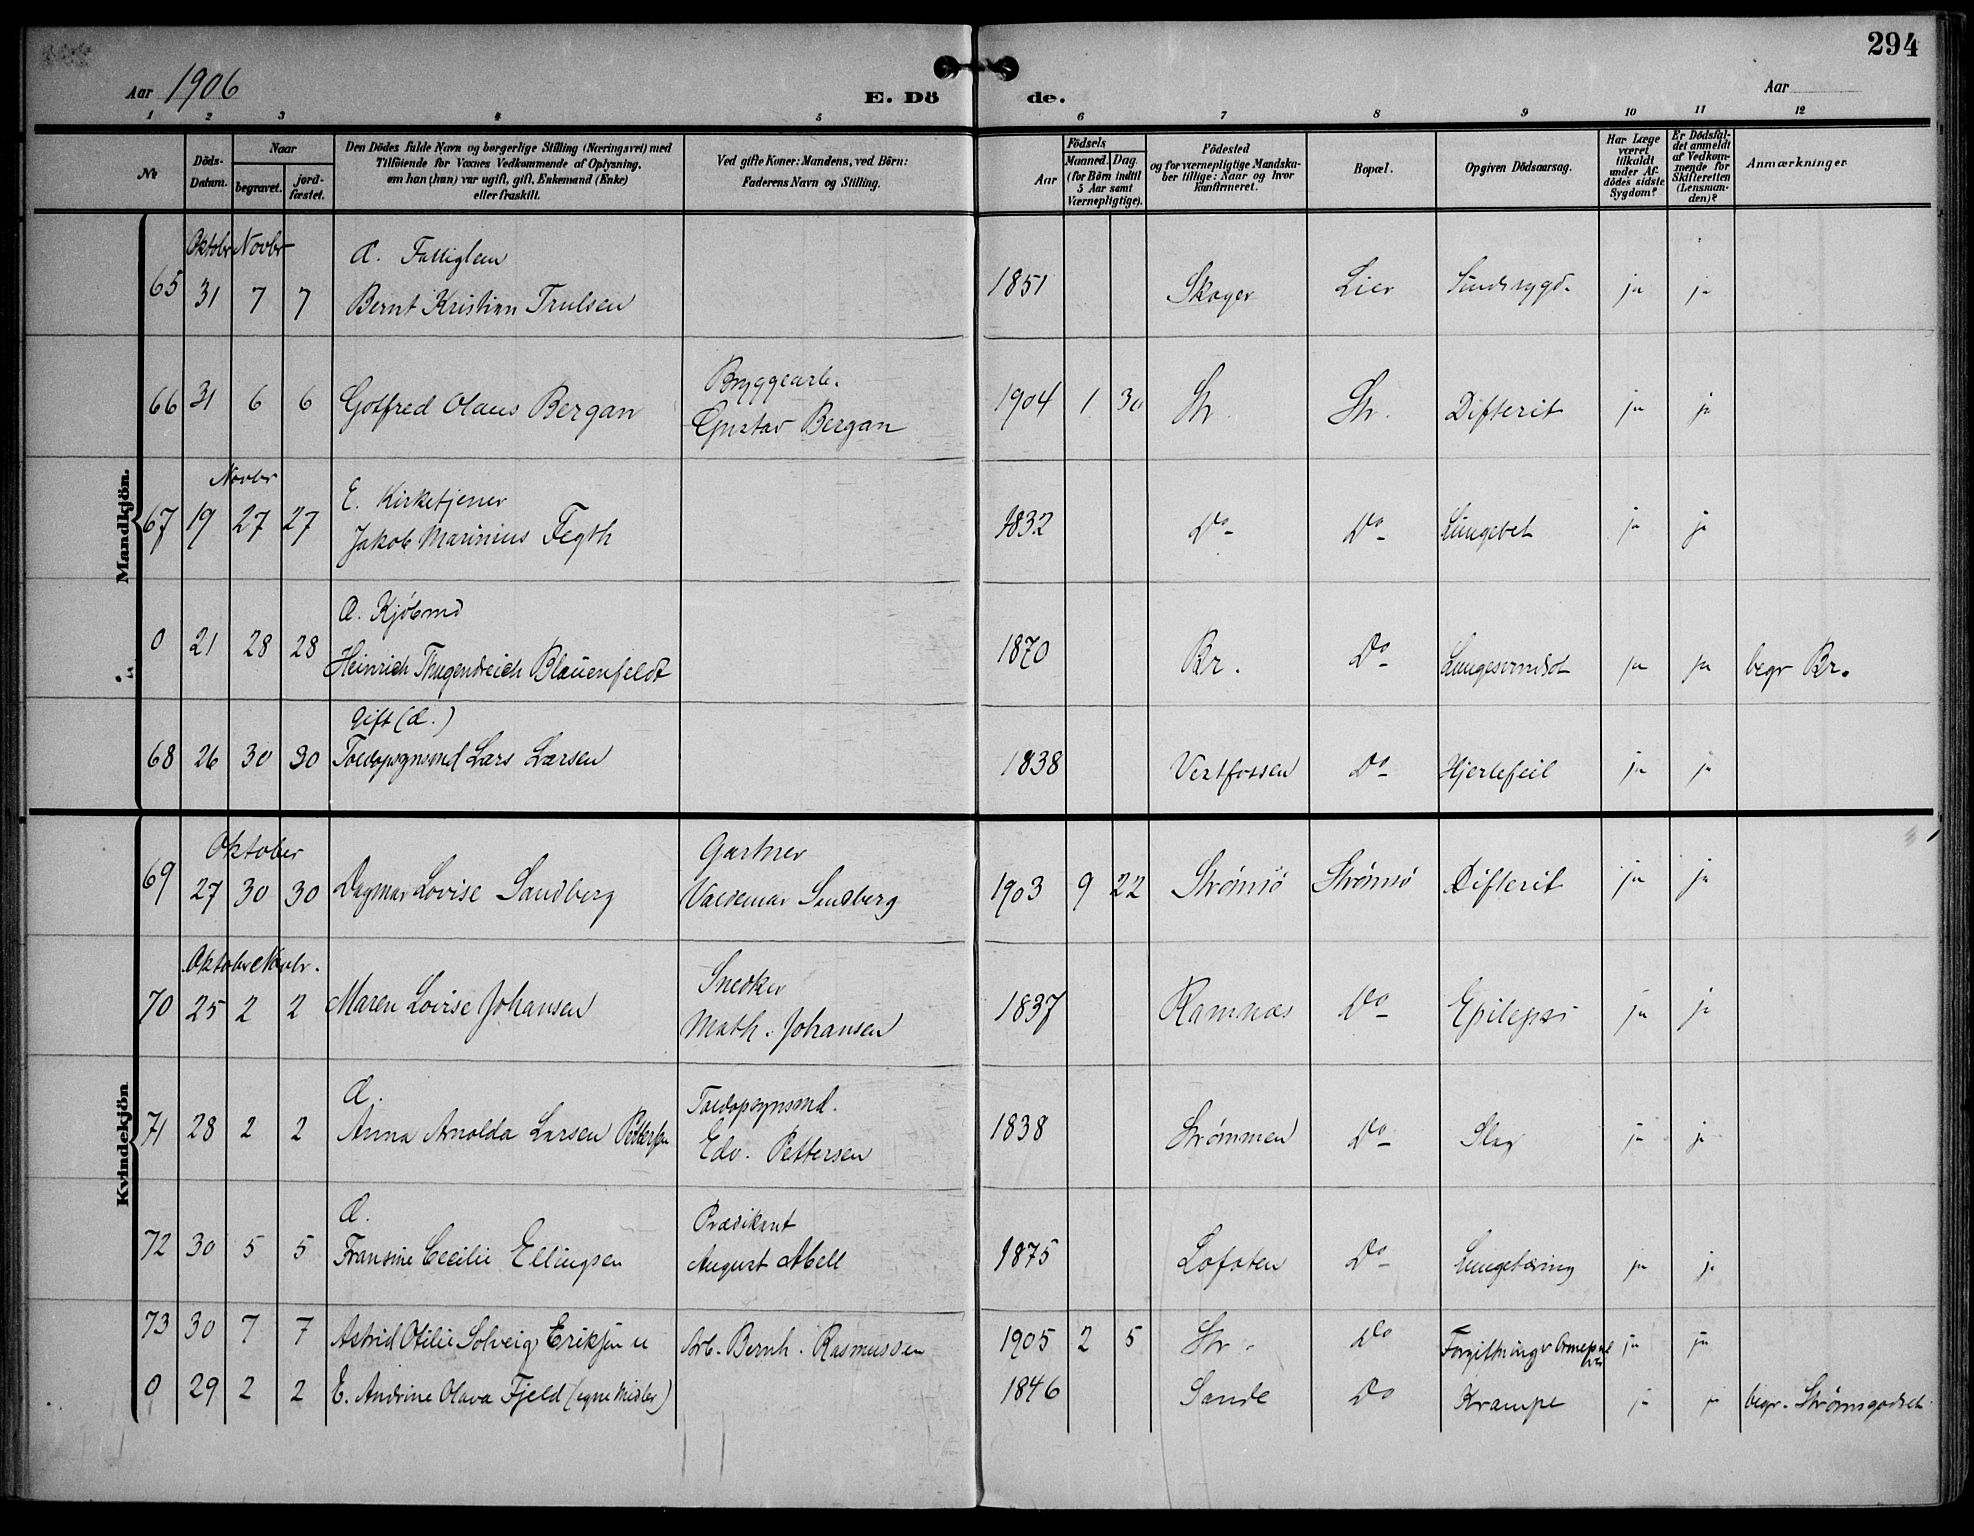 294
Aar 1906
E. Dö de.
Aar
1 2 3 4 5 6 7 8 9 10 11 12
No
Döds-Datum.
Naar
begravet.
jord-fæstet.
Den Dödes fulde Navn og borgerlige Stilling (Næringsvei) med
Tilföiende for Voxnes Vedkommende af Oplysning,
om han (hun) var ugift, gift, Enkemand (Enke)
eller fraskilt.
Ved gifte Koner: Mandens, ved Börn:
Faderens Navn og Stilling.
Födsels
Aar
Maaned. Dag.
(for Börn indtil
5 Aar samt
Værnepligtige).
Födested
og for værnepligtige Mandska-
ber tillige: Naar og hvor
Konfirmeret.
Bopæl.
Opgiven Dödsaarsag.
Har Læge
været
tilkaldt
under Af-
dödes sidste
Sygdom?
Er Dödsfal-
det anmeldt
af Vedkom-
mende for
Skifteretten
(Lensman-
den)?
Anmærkninger
Mandkjön.
Oktobr Novbr
G. Fattiglem
65 31 7 7 Bernt Kristian Trulsen 1851 Skoger Lier Sindssygd. ja ja
Bryggearb.
66 31 6 6 Gotfred Olaus Bergan Gustav Bergan 1904 1 30 Str. Str. Difterit ja ja
Novbr
E. Kirketjener
67 19 27 27 Jakob Marinius Fegth 1832 Do Do Lungebet ja ja
G. Kjöbmd
0 21 28 28 Heinrich Thugendreich Blauenfeldt 1870 Br. Do ja ja begr Br.
Gift (G.)
68 26 30 30 Toldopsynsmd Lars Larsen 1838 Vestfossen Do Hjertefeil ja ja
Kvindekjön
Oktober
Gartner
69 27 30 30 Dagmar Lovise Sandberg Valdemar Sandberg 1903 9 22 Strömsö Strömsö Difterit ja ja
Oktobr Novbr.
Snedker
70 25 2 2 Maren Lovise Johansen Math. Johansen 1837 Ramnæs Do Epilepsi ja ja
G. Toldopsynsmd.
71 28 2 2 Anna Arnolda Larsen Pettersen Edv. Pettersen 1838 Strømmen Do Slag ja ja
G. Prædikant
72 30 5 5 Fransine Cecilie Ellingsen August Abell 1875 Lofoten Do Lungetæring ja ja
73 30 7 7 Astrid Otilie Solveig Eriksen u Arb. Bernh. Rasmussen 1905 2 5 Str. Do Forgiftning ja ja
0 29 2 2 E. Andrine Olava Fjeld (egne Midler) 1846 Sande Do Krampe ja ja begr. Strømsgodset